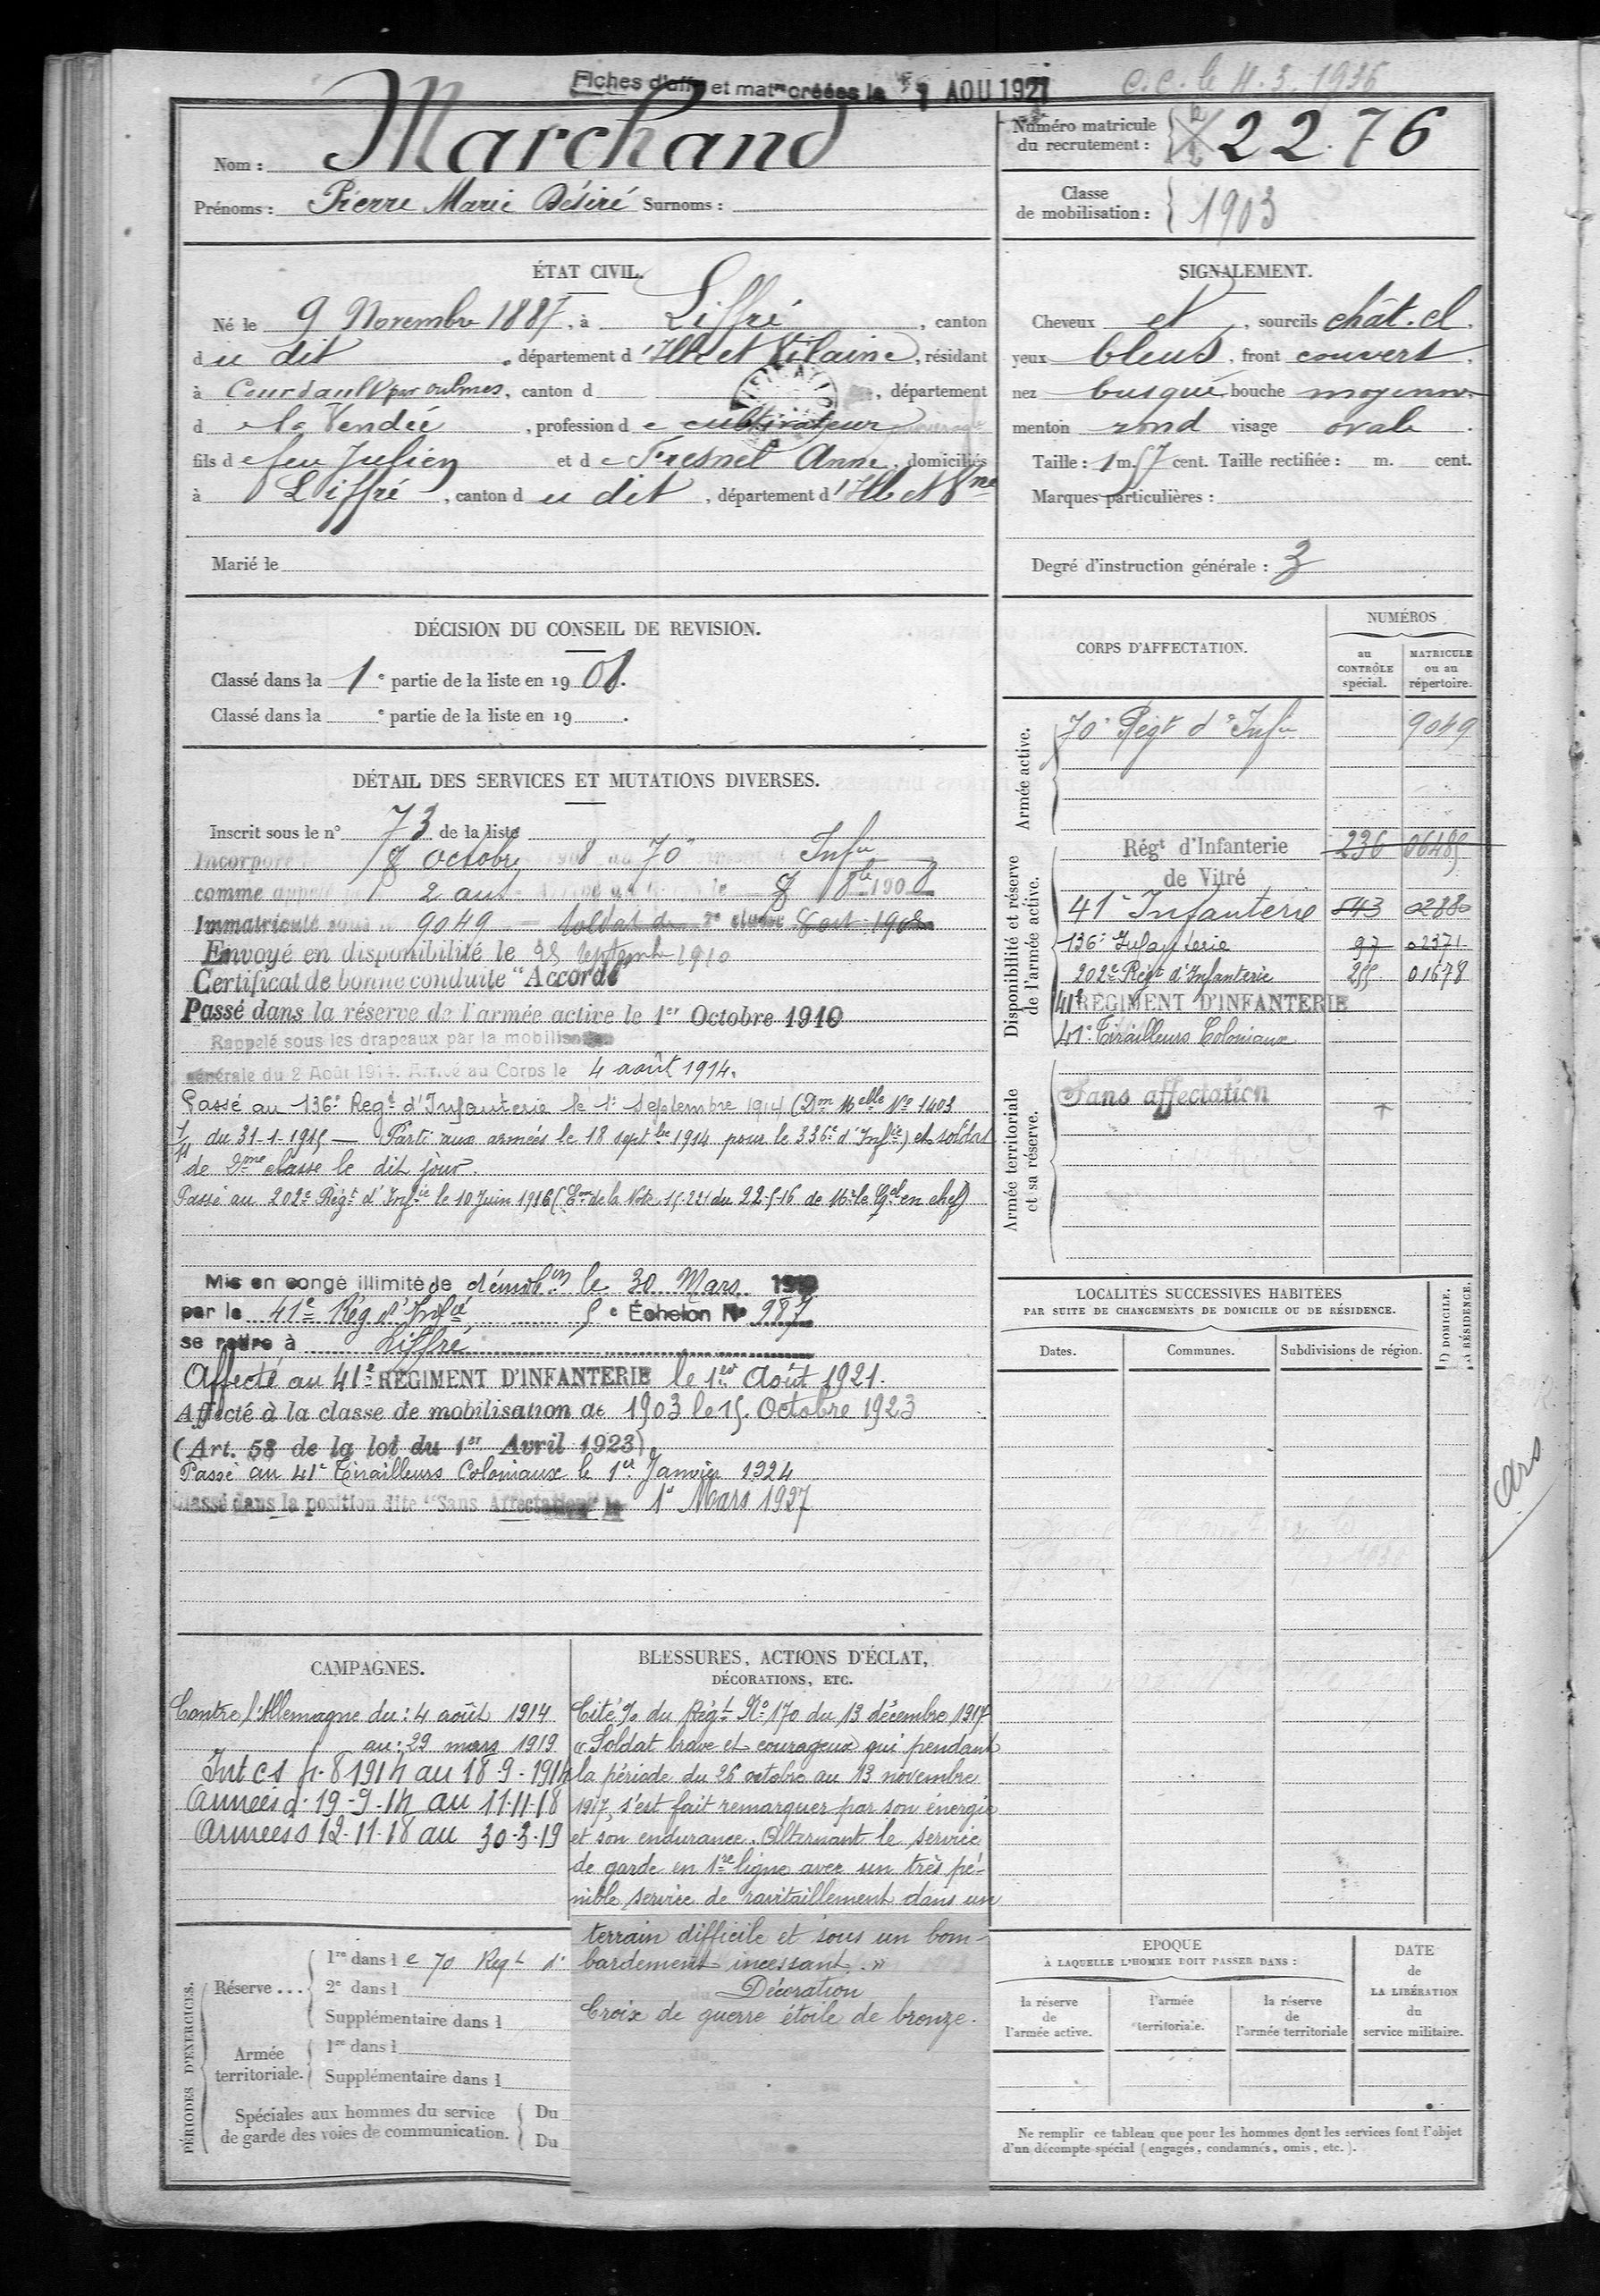 Fiches d'affon et matles créées le 1 AOU 1921
C.C. le 4.3.1936
Nom : Marchand
Prénoms : Pierre Marie Désiré Surnoms :
Numéro matricule du recrutement : 2276
Classe de mobilisation : 1903
ÉTAT CIVIL.
Né le 9 Novembre 1887, à Liffré, canton
du dit, département d'Ille et Vilaine, résidant
à Courdault par oulmes, canton d , département
d e la Vendée, profession d e cultivateur
fils d e feu Julien et d e Fresnel Anne, domiciliés
à Liffré, canton du dit, département d'Ille et Vne
Marié le
SIGNALEMENT.
Cheveux et, sourcils chât. cl.
yeux bleus, front couvert,
nez busqué, bouche moyenne
menton rond visage ovale.
Taille : 1 m. 57 cent. Taille rectifiée : m. cent.
Marques particulières :
Degré d'instruction générale : 3
DÉCISION DU CONSEIL DE REVISION.
Classé dans la 1e partie de la liste en 1908.
Classé dans la e partie de la liste en 19 .
DÉTAIL DES SERVICES ET MUTATIONS DIVERSES.
Inscrit sous le n° 73 de la liste
Incorporé 8 octobre 1908 au 70e Infie
comme appelé 2 ans Arrivé au Corps le 8 8bre 1908
Immatriculé sous le 9049 soldat de 2e classe 8 oct 1908
Envoyé en disponibilité le 25 septembre 1910
Certificat de bonne conduite "Accordé"
Passé dans la réserve de l'armée active le 1er Octobre 1910
Rappelé sous les drapeaux par la mobilisation
générale du 2 Août 1914. Arrivé au Corps le 4 août 1914.
Passé au 136e Regt d'Infanterie le 1er Septembre 1914 (Don Melle No 1403
du 31-1-1915 — Parti aux armées le 18 septbre 1914 pour le 336e d'Infie) et soldat
de 2me classe le dit jour.
Passé au 202e Régt d'Infie le 10 Juin 1916 (Eon de la Note 15.221 du 22-5-16 de Mr le Gal en chef)
Mis en congé illimité de démobon le 30 Mars 1919
par le 41e Rég d'Infie 5e Échelon No 987
se retire à Liffré
Affecté au 41e RÉGIMENT D'INFANTERIE le 1er Août 1921.
Affecté à la classe de mobilisation de 1903 le 15 Octobre 1923
(Art. 58 de la loi du 1er Avril 1923).
Passé au 41e Tirailleurs Coloniaux le 1er Janvier 1924
Classé dans la position dite "Sans Affectation" le 1er Mars 1927
CORPS D'AFFECTATION.
NUMÉROS
au CONTRÔLE spécial.
MATRICULE ou au répertoire.
Armée active.
70e Régt d'Infie 9049
Disponibilité et réserve de l'armée active.
Régt d'Infanterie 236 06485
de Vitré
41e Infanterie 543 0280
136e Infanterie 97 02371
202e Régt d'Infanterie 255 01678
41e RÉGIMENT D'INFANTERIE
41e Tirailleurs Coloniaux
Armée territoriale et sa réserve.
Sans affectation
LOCALITÉS SUCCESSIVES HABITÉES
PAR SUITE DE CHANGEMENTS DE DOMICILE OU DE RÉSIDENCE.
Dates.
Communes.
Subdivisions de région.
D DOMICILE.
R RÉSIDENCE.
Ars
CAMPAGNES.
Contre l'Allemagne du : 4 août 1914
au : 29 mars 1919
Int CS 4.8 1914 au 18-9-1914
Armées d. 19-9-14 au 11-11-18
Armées s 12-11-18 au 30-3-19
BLESSURES, ACTIONS D'ÉCLAT,
DÉCORATIONS, ETC.
Cité % du Régt No 170 du 13 décembre 1917
« Soldat brave et courageux qui pendant
la période du 26 octobre au 13 novembre
1917, s'est fait remarquer par son énergie
et son endurance. Alternant le service
de garde en 1re ligne avec un très pé-
nible service de ravitaillement dans un
terrain difficile et sous un bom-
bardement incessant. »
Décoration
Croix de guerre étoile de bronze.
PÉRIODES D'EXERCICES.
Réserve ...
1re dans le 70 Regt d'
2e dans l
Supplémentaire dans l
Armée territoriale.
1re dans l
Supplémentaire dans l
Spéciales aux hommes du service
de garde des voies de communication.
Du
Du
EPOQUE
À LAQUELLE L'HOMME DOIT PASSER DANS :
la réserve de l'armée active.
l'armée territoriale.
la réserve de l'armée territoriale
DATE
de
LA LIBÉRATION
du
service militaire.
Ne remplir ce tableau que pour les hommes dont les services font l'objet
d'un décompte spécial (engagés, condamnés, omis, etc.).